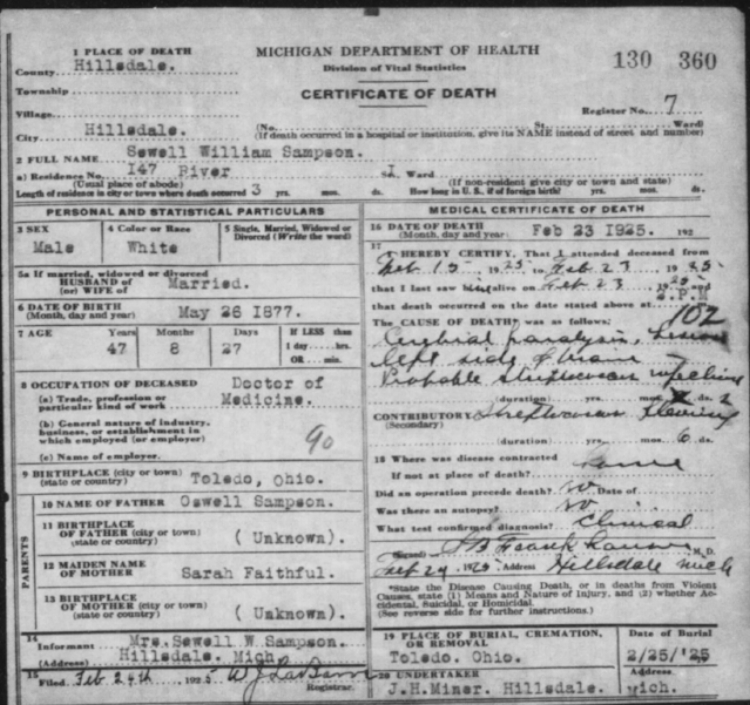 1 PLACE OF DEATH
County Hillsdale.
Township
Village
City Hillsdale.
MICHIGAN DEPARTMENT OF HEALTH
Division of Vital Statistics
CERTIFICATE OF DEATH
130 360
Register No. 7
(No. St. Ward)
(If death occurred in a hospital or institution, give its NAME instead of street and number)
2 FULL NAME Sewell William Sampson.
a) Residence No. I47 River St. I Ward
(Usual place of abode) (If non-resident give city or town and state)
Length of residence in city or town where death occurred 3 yrs. mos. ds. How long in U. S., if of foreign birth? yrs. mos. ds.
PERSONAL AND STATISTICAL PARTICULARS
3 SEX
Male
4 Color or Race
White
5 Single, Married, Widowed or
Divorced (Write the word)
5a If married, widowed or divorced
HUSBAND of
(or) WIFE of Married.
6 DATE OF BIRTH
(Month, day and year) May 26 I877.
7 AGE Years Months Days If LESS than
47 8 27 1 day hrs.
OR min.
8 OCCUPATION OF DECEASED
(a) Trade, profession or
particular kind of work
Doctor of
Medicine.
(b) General nature of industry,
business, or establishment in
which employed (or employer)
90
(c) Name of employer.
9 BIRTHPLACE (city or town)
(state or country) Toledo, Ohio.
PARENTS
10 NAME OF FATHER Oswell Sampson.
11 BIRTHPLACE
OF FATHER (city or town)
(state or country) ( Unknown).
12 MAIDEN NAME
OF MOTHER Sarah Faithful.
13 BIRTHPLACE
OF MOTHER (city or town)
(state or country) ( Unknown).
14
Informant Mrs.Sewell W.Sampson.
(Address) Hillsdale. Mich
15
Filed Feb 24th 1925
Registrar.
MEDICAL CERTIFICATE OF DEATH
16 DATE OF DEATH
(Month, day and year) Feb 23 I925. 192
17
I HEREBY CERTIFY, That I attended deceased from
Feb 15 1925 to Feb 23 1925
that I last saw him alive on Feb 23 1925 and
that death occurred on the date stated above at P.M
The CAUSE OF DEATH* was as follows:
102
Cerebral paralysis,
left side of brain
Probable
(duration) yrs. mos. ds. 2
CONTRIBUTORY
(Secondary)
(duration) yrs. mos. 6 ds.
18 Where was disease contracted
If not at place of death?
Did an operation precede death? no Date of
Was there an autopsy? no
What test confirmed diagnosis? Clinical
(Signed) M. D.
Feb 24, 1925, Address Hillsdale Mich
*State the Disease Causing Death, or in deaths from Violent
Causes, state (1) Means and Nature of Injury, and (2) whether Ac-
cidental, Suicidal, or Homicidal.
(See reverse side for further instructions.)
19 PLACE OF BURIAL, CREMATION,
OR REMOVAL
Toledo. Ohio.
Date of Burial
2/25/'25
20 UNDERTAKER
J.H.Miner. Hillsdale.
Address
Mich.